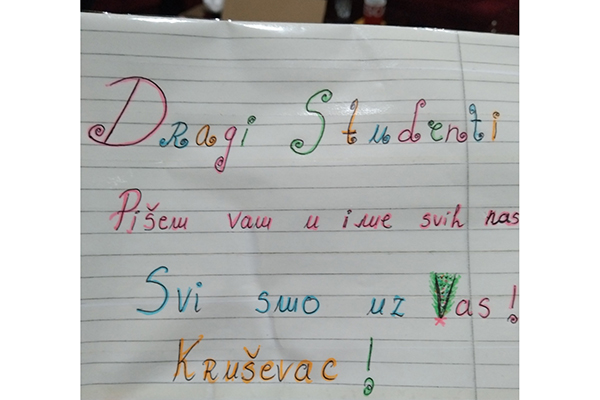 Dragi Studenti
Pišem vam u ime svih nas
Svi smo uz Vas!
Kruševac!